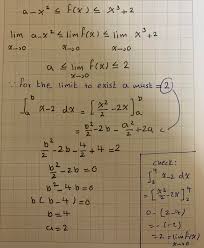 a - x² ≤ f(x) ≤ x³ + 2
lim a - x² ≤ lim f(x) ≤ lim x³ + 2
x→0 x→0 x→0
a ≤ lim f(x) ≤ 2
x→0
∵ for the limit to exist a must = 2
∫ₐᵇ x - 2 dx = [x²/2 - 2x]ₐᵇ
= b²/2 - 2b - a²/2 + 2a
b²/2 - 2b - 4/2 + 4 = 2
b²/2 - 2b = 0
b² - 4b = 0
b(b - 4) = 0
b = 4
a = 2
check:
∫₂⁴ x - 2 dx
= [x²/2 - 2x]₂⁴
0 - (2 - 4)
= - (-2)
= 2 = lim f(x)
x→0